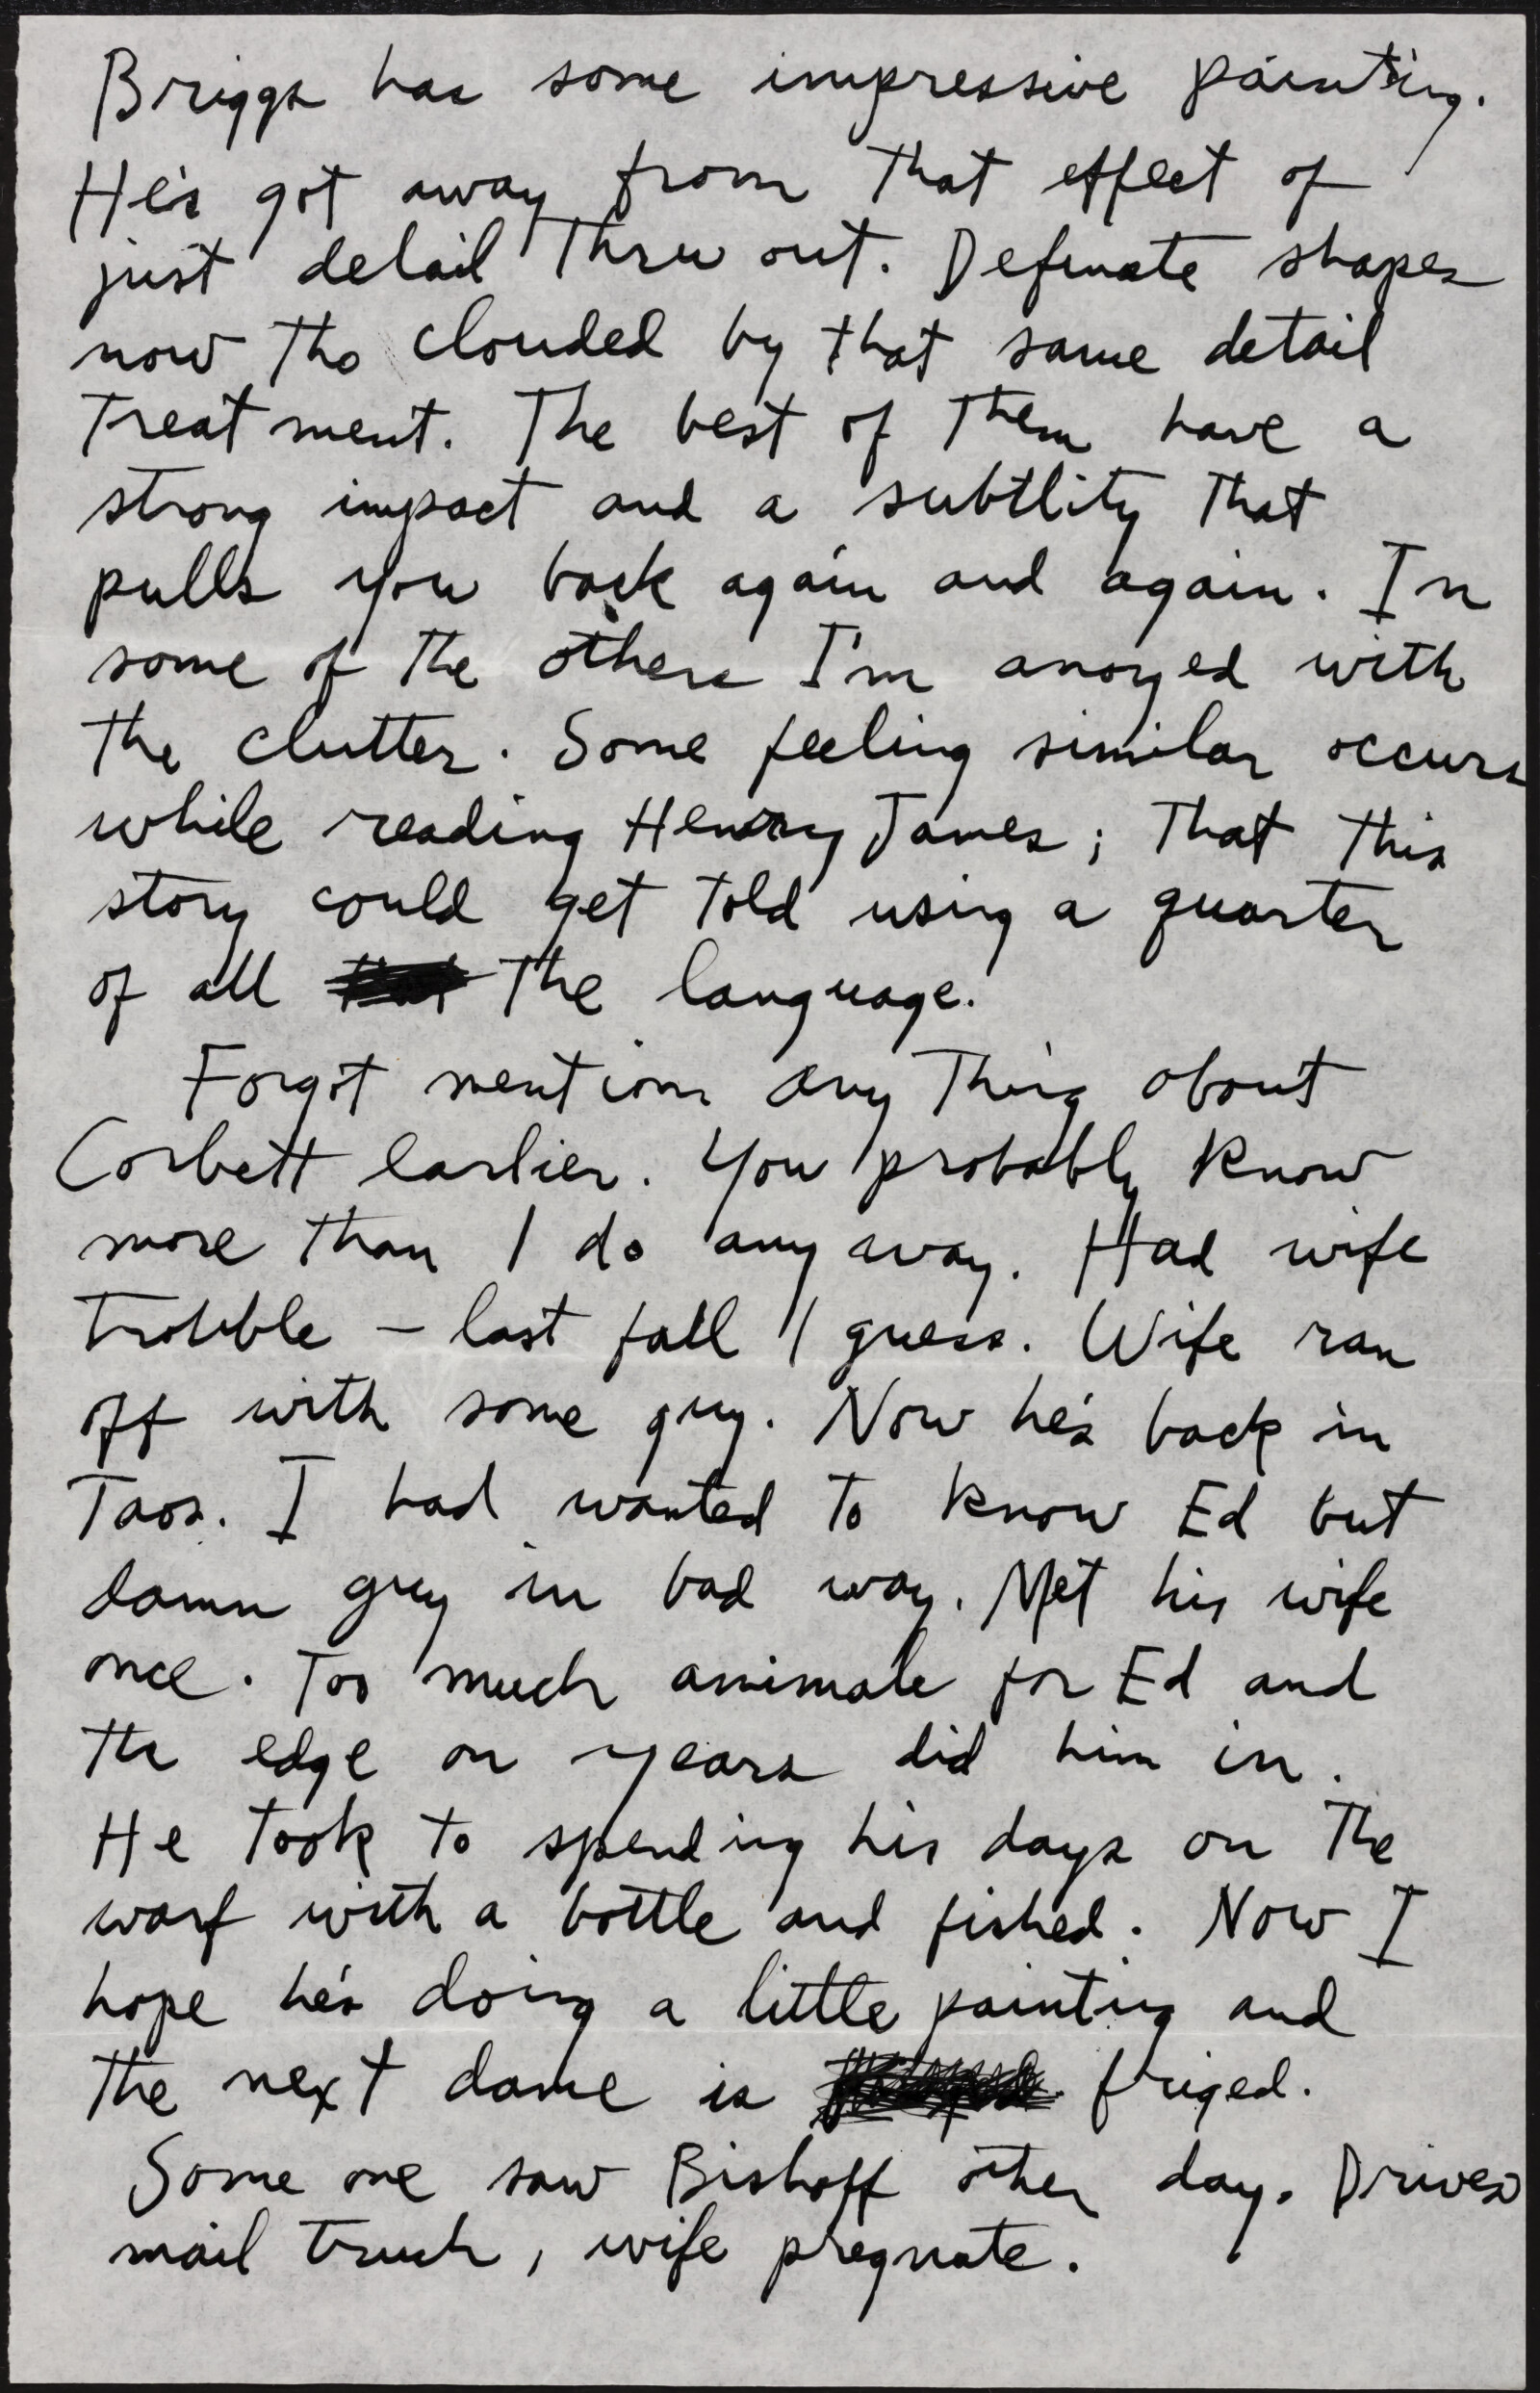 Briggs has some impressive painting.
He's got away from that effect of
just detail thru out. Definate shapes
now tho clouded by that same detail
treatment. The best of them have a
strong impact and a subtlity that
pulls you back again and again. In
some of the others I'm anoyed with
the clutter. Some feeling similar occurs
while reading Henry James; that this
story could get told using a quarter
of all the language.
Forgot mention any thing about
Corbett earlier. You probably know
more than I do any way. Had wife
trouble - last fall I guess. Wife ran
off with some guy. Now he's back in
Taos. I had wanted to know Ed but
damn guy in bad way. Met his wife
once. Too much animale for Ed and
the edge on years did him in.
He took to spending his days on the
warf with a bottle and fished. Now I
hope he's doing a little painting and
the next dame is friged.
Some one saw Bishoff other day. Drives
mail truck, wife pregnate.